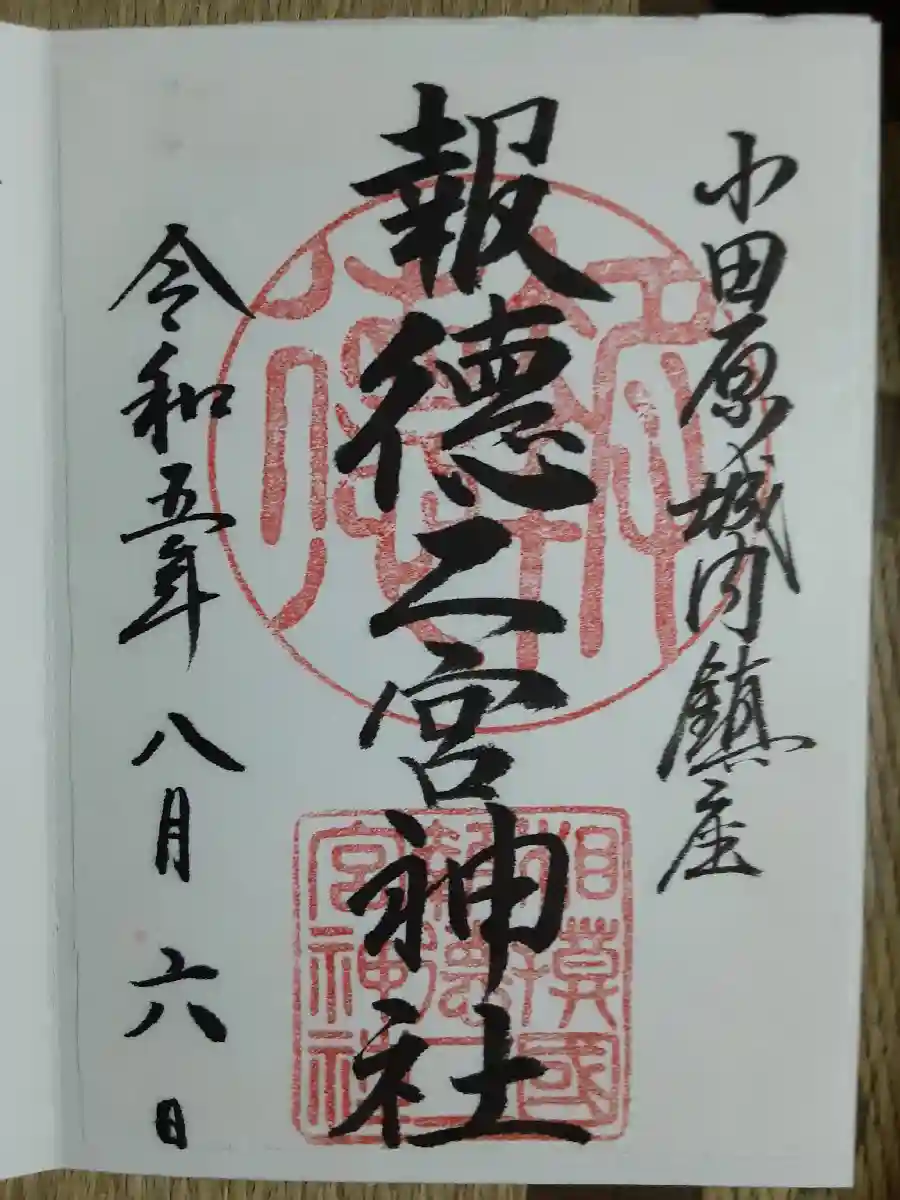 小田原城内鎮座
報徳二宮神社
令和五年八月六日
相模國
報徳二
宮神社